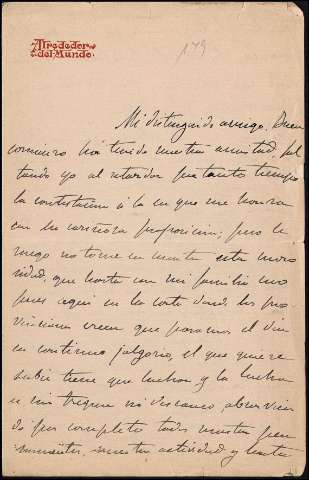 Alrededor
del Mundo
179
Mi distinguido amigo: Buen
comienzo ha tenido nuestra amistad, fal
tando yo al retardar por tanto tiempo
la contestación á la en que me honra
con su cariñosa proposición; pero le
ruego no tome en cuenta esta moro
sidad, que hasta con mi familia
pues aquí en la corte donde los pro
vincianos creen que pasamos el día
en continuo jolgorio, el que quiere
subir tiene que luchar y la lucha
es sin tregua ni descanso, absorvien
do por completo todo nuestro pen
samiento, nuestra actividad y hasta